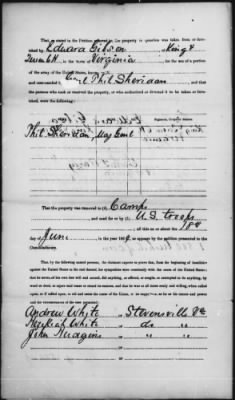 That as stated in the Petition referred to the property in question was taken from or furnished
by Edward Gibson King &
Queen Co in the State of Virginia for the use of a portion
of the army of the United States, known as
and commanded by Genl Phil Sheridan and that
the persons who took or received the property, or who authorized or directed it to be taken or
furnished, were the following:
Phil Sheridan, Maj Genl
That the property was removed to Camp
and used for or by U.S. troops
all this on or about the 18th
day of June in the year 186 , as appears by the petition presented to the
Commissioners.
By the facts above presented, the claimant expects to prove that, from the beginning of hostilities
against the United States to the end thereof, his sympathies were constantly with the cause of the United States;
that he never of his own free will and accord, did anything, or offered, or sought, or attempted to do anything, by
word or deed, to injure said cause or retard its success, and that he was at all times ready and willing, when called
upon, or if called upon, to aid and assist the cause of the Union, or its supporters, so far as his means and power
and the circumstances of the case permitted.
Andrew White of Stevensville Va
Hezekiah White of do "
John Hudgins of " "
of
of